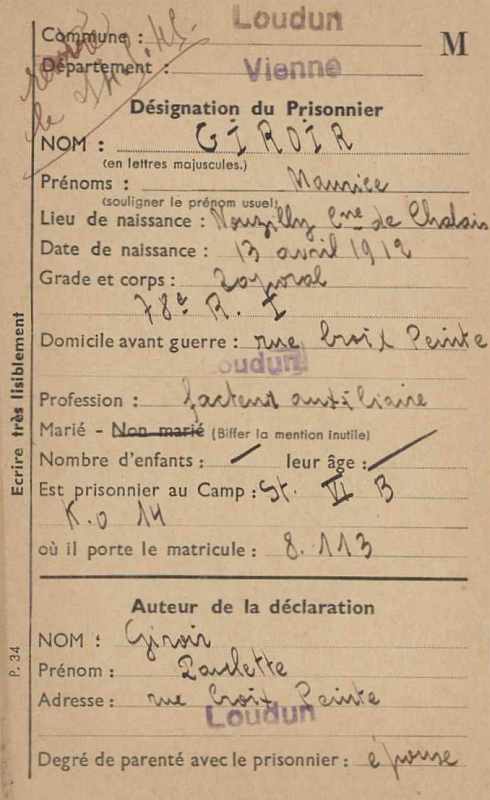 Commune : Loudun
M
Département : Vienne
Désignation du Prisonnier
NOM : GIROIR
(en lettres majuscules.)
Prénoms : Maurice
(souligner le prénom usuel)
Lieu de naissance : Nouzilly Cne de Chalais
Date de naissance : 13 avril 1912
Grade et corps : Caporal
78e R. I
Domicile avant guerre : rue Croix Peinte
Loudun
Profession : facteur auxiliaire
Marié - Non marié (Biffer la mention inutile)
Nombre d'enfants : / leur âge : /
Est prisonnier au Camp : St. VI B
K.o 14
où il porte le matricule : 8.113
Auteur de la déclaration
NOM : Giroir
Prénom : Paulette
Adresse : rue Croix Peinte
Loudun
Degré de parenté avec le prisonnier : épouse
Ecrire très lisiblement
P. 34